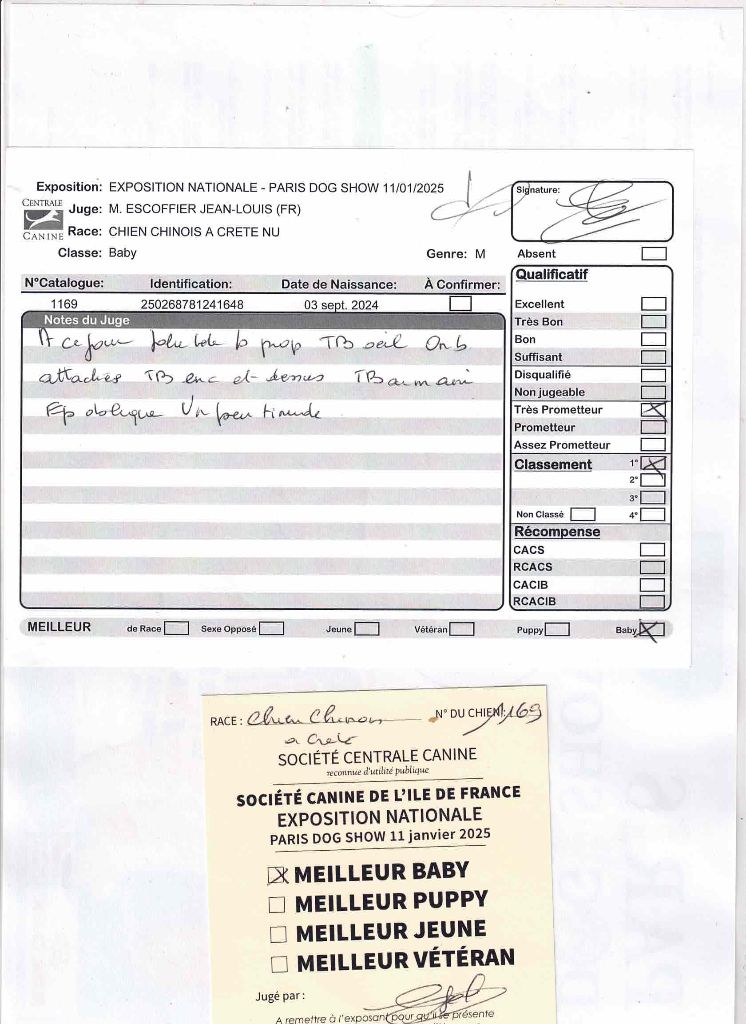 Exposition: EXPOSITION NATIONALE - PARIS DOG SHOW 11/01/2025
CENTRALE CANINE
Juge: M. ESCOFFIER JEAN-LOUIS (FR)
Race: CHIEN CHINOIS A CRETE NU
Classe: Baby
Genre: M
Signature:
N°Catalogue: Identification: Date de Naissance: À Confirmer:
1169 250268781241648 03 sept. 2024
Notes du Juge
A ce jour jolie tete b prop TB oeil Oreille
attachés TB enc et dessus TB
Ep oblique Un peu timide
Absent
Qualificatif
Excellent
Très Bon
Bon
Suffisant
Disqualifié
Non jugeable
Très Prometteur
Prometteur
Assez Prometteur
Classement 1°
2°
3°
Non Classé 4°
Récompense
CACS
RCACS
CACIB
RCACIB
MEILLEUR de Race Sexe Opposé Jeune Vétéran Puppy Baby
RACE : Chien Chinois N° DU CHIEN: 1169
a Crete
SOCIÉTÉ CENTRALE CANINE
reconnue d'utilité publique
SOCIÉTÉ CANINE DE L'ILE DE FRANCE
EXPOSITION NATIONALE
PARIS DOG SHOW 11 janvier 2025
MEILLEUR BABY
MEILLEUR PUPPY
MEILLEUR JEUNE
MEILLEUR VÉTÉRAN
Jugé par :
A remettre à l'exposant pour qu'il se présente